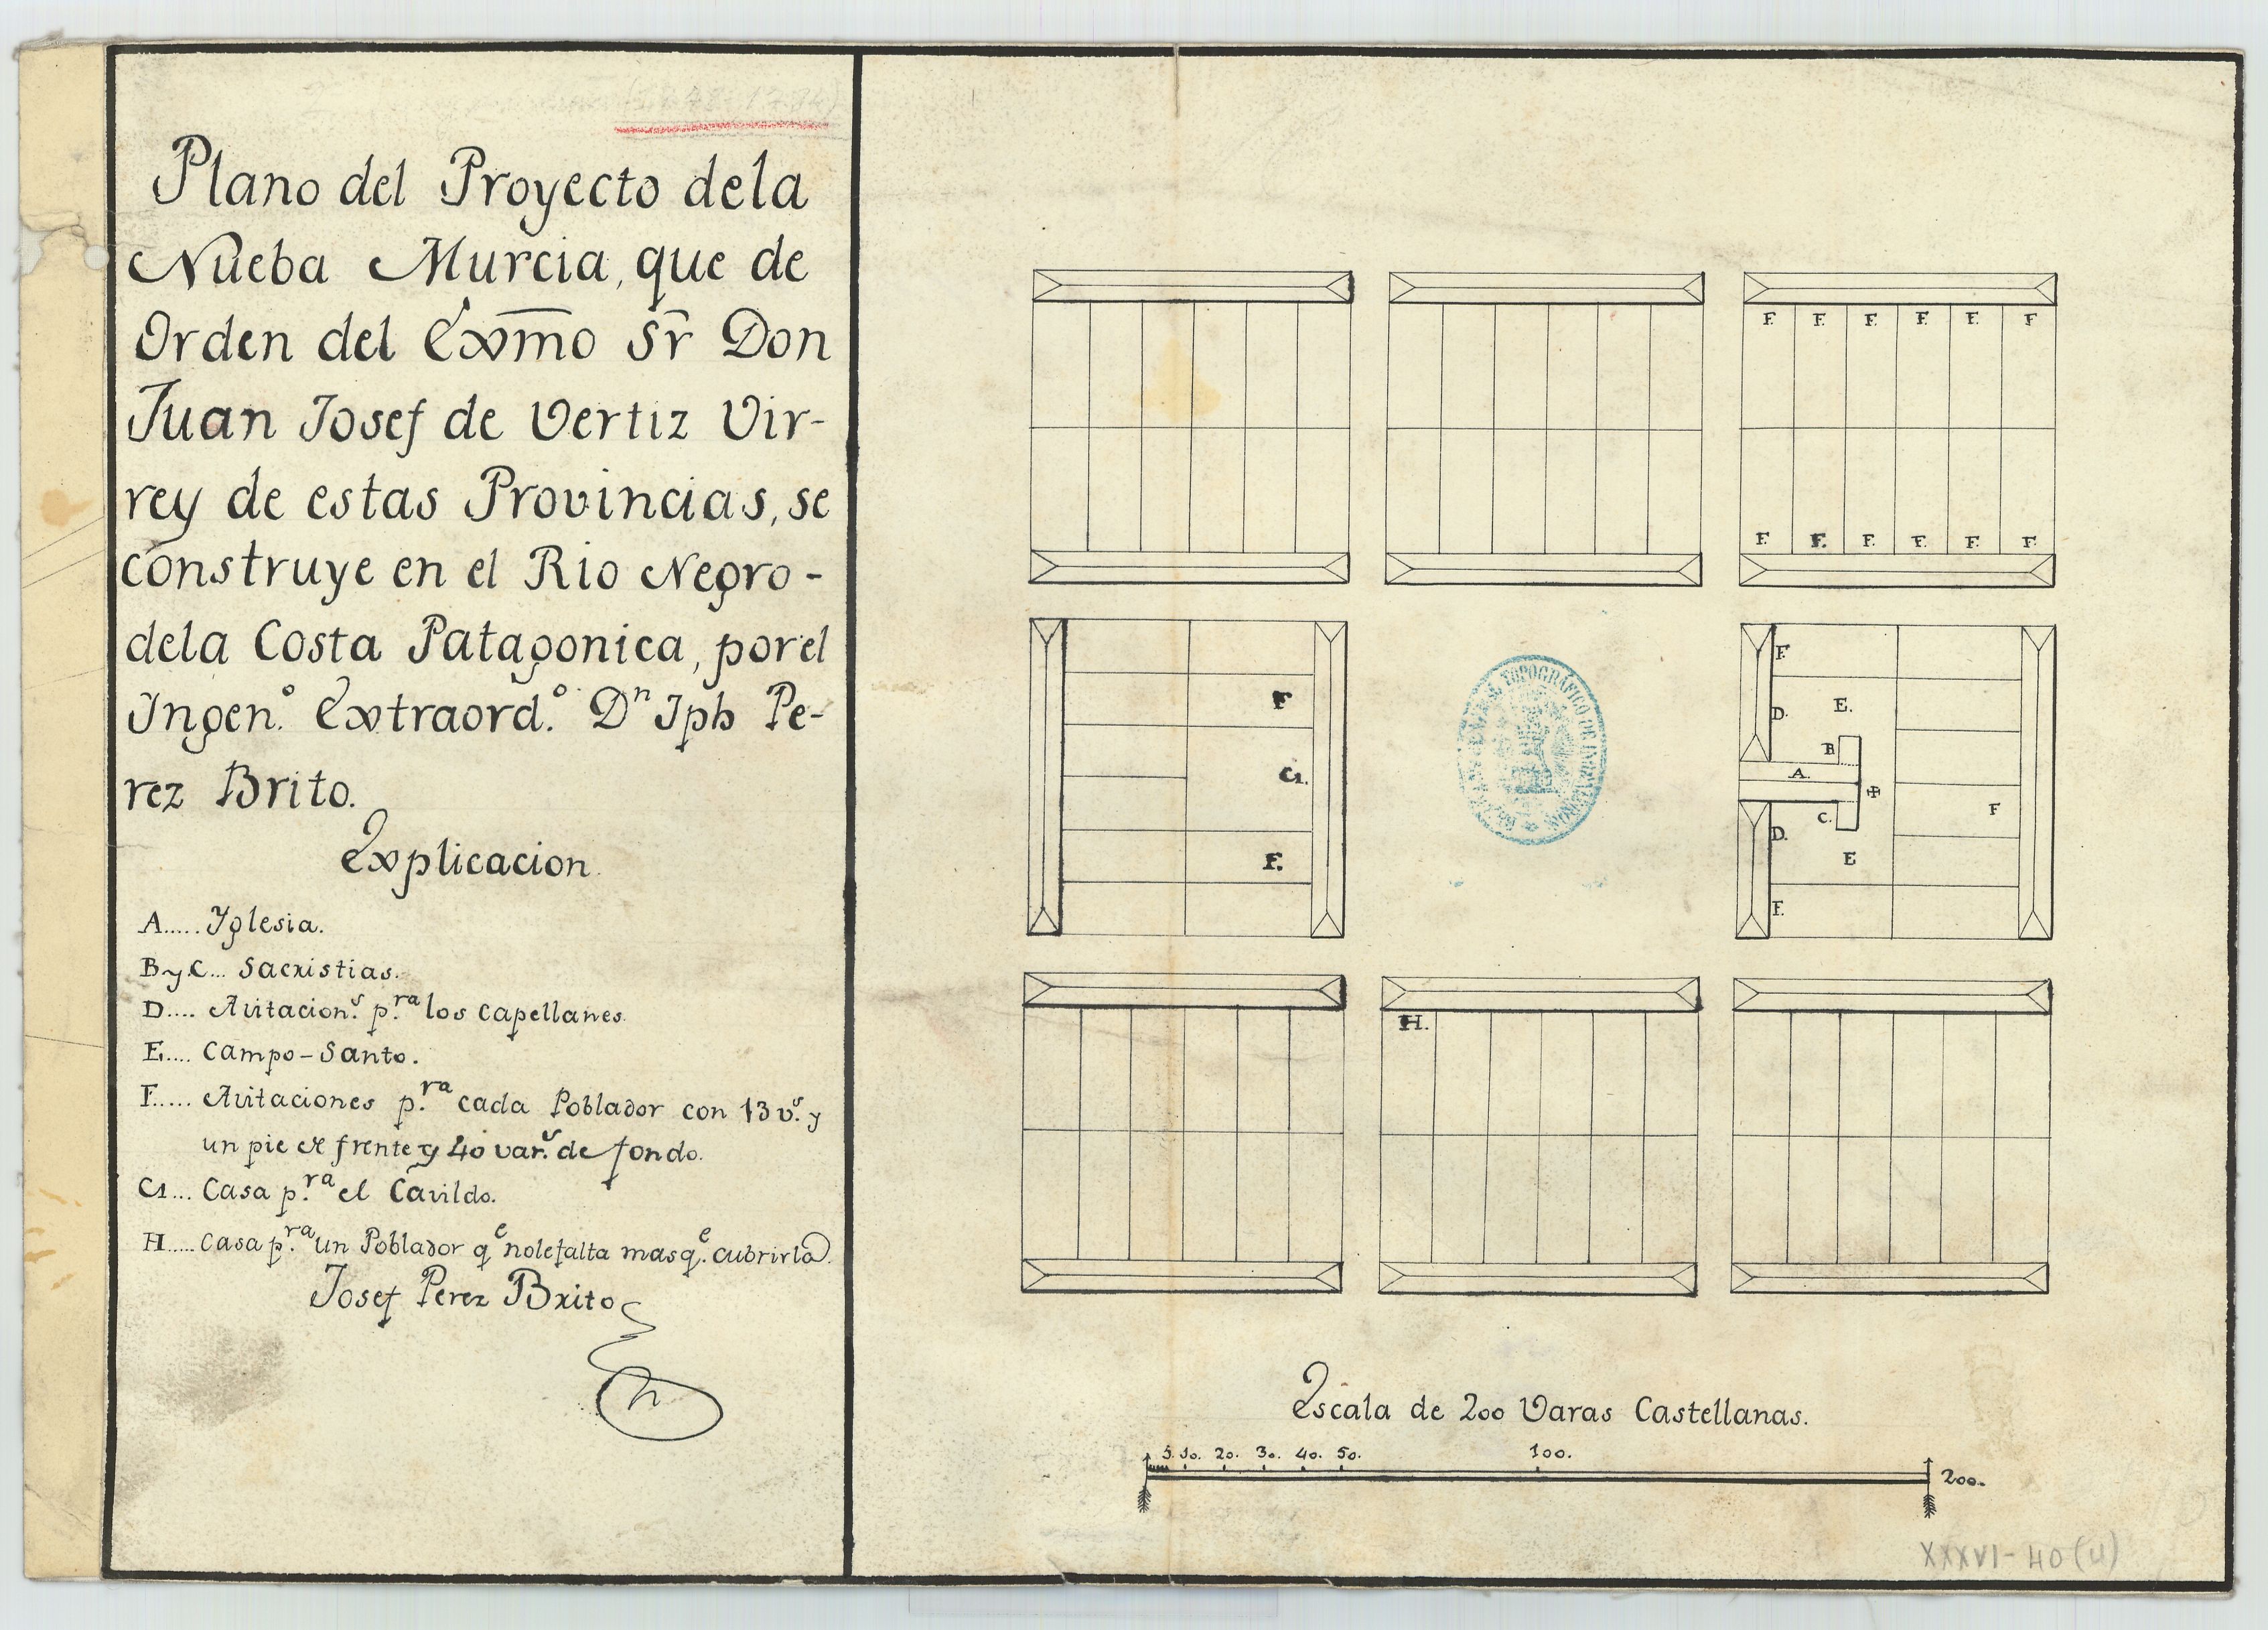 Plano del Proyecto dela
Nueba Murcia, que de
Orden del Exmo Sr Don
Juan Josef de Vertiz Vir-
rey de estas Provincias, se
construye en el Rio Negro-
dela Costa Patagonica, por el
Ingen.º Extraord.º Dⁿ Jph Pe-
rez Brito.
Explicacion.
A..... Yglesia.
B y C... Sacristias.
D.... Avitacion.ˢ p.ʳᵃ los Capellanes.
E.... Campo-Santo.
F..... Avitaciones p.ʳᵃ cada Poblador con 13 v.ˢ y
un pie de frente y 40 var.ˢ de fondo.
G... Casa p.ʳᵃ el Cavildo.
H..... Casa p.ʳᵃ un Poblador qᵉ nole falta mas q.ᵉ cubrirla.
Josef Perez Brito
F. F. F. F. F. F
F. F. F. F. F. F.
F
G.
F.
F
D.
E.
B
A.
C.
D.
E
F.
F
H.
Escala de 200 Varas Castellanas.
5. 10. 20. 30. 40. 50. 100. 200.
XXXVI-40(U)